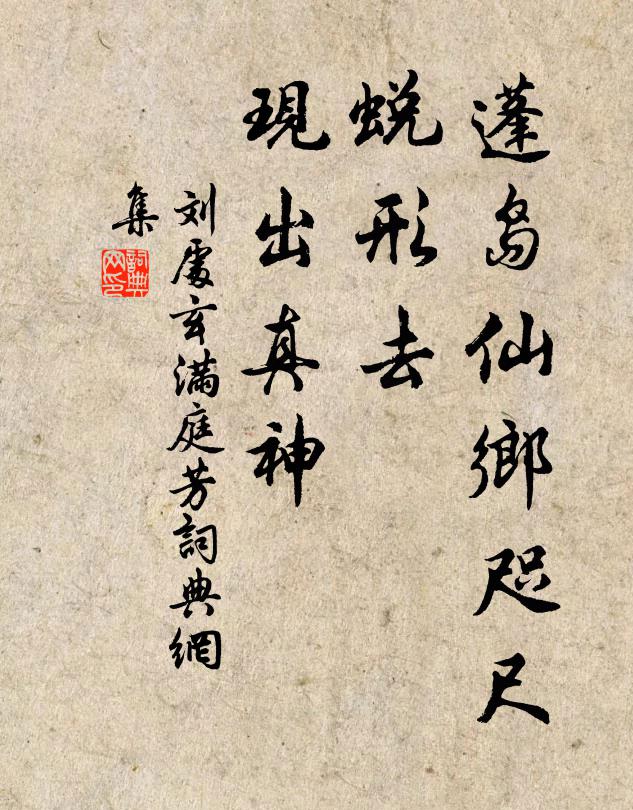 蓬島仙鄉咫尺
蜕形去
現出真神
刘處玄滿庭芳詞典網
集
詞典
网印